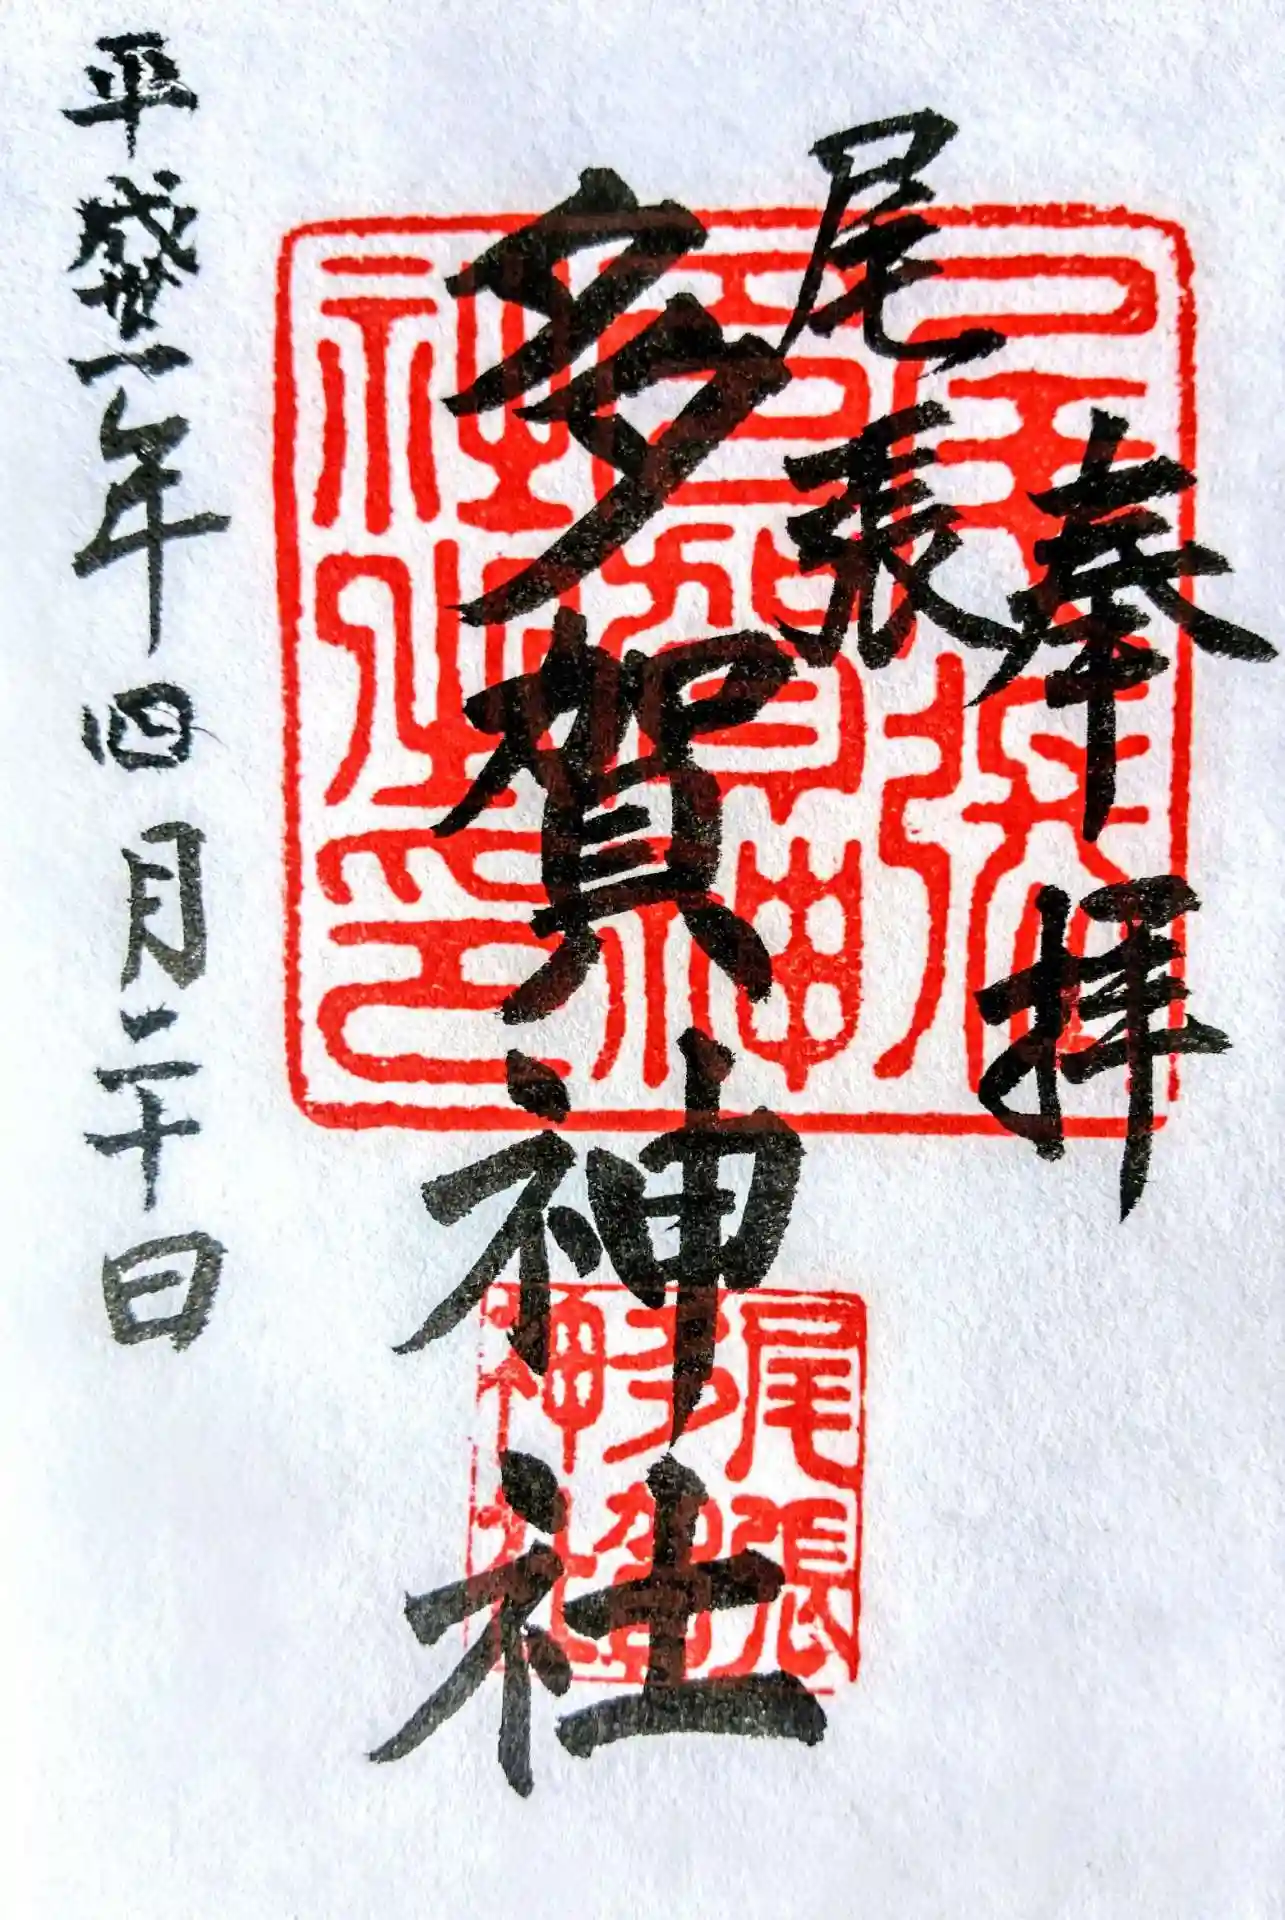 奉拝
尾張
多賀神社
平成卅一年四月二十日
尾張
多賀
神社